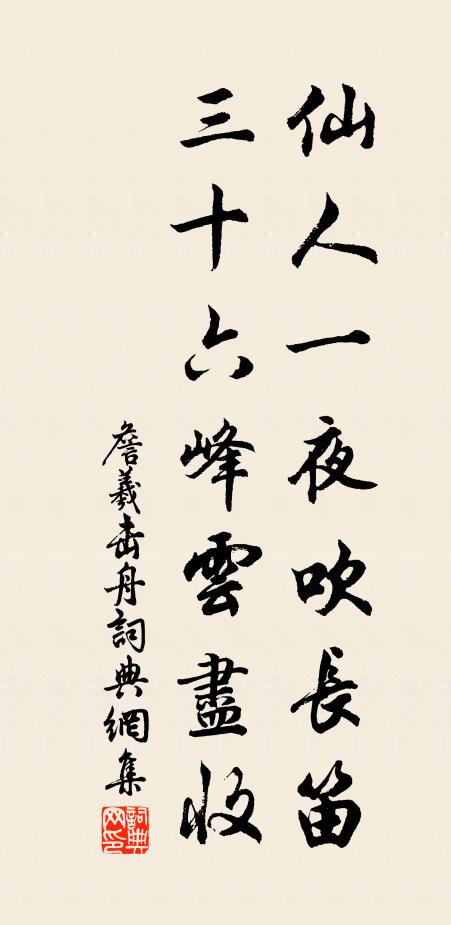 仙人一夜吹長笛
三十六峰雲盡收
詹羲击舟詞典網集
詞典网印